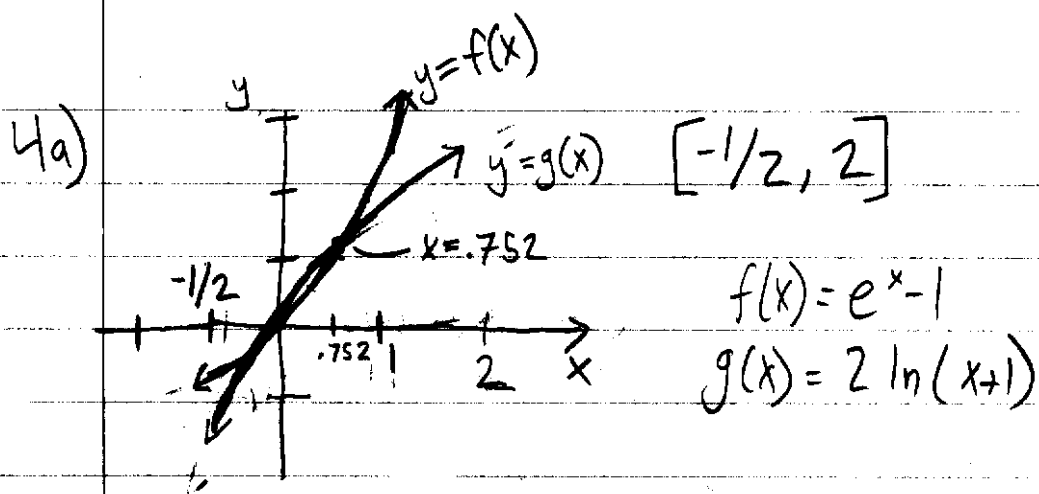 4a)
y
y=f(x)
y=g(x)
[-1/2, 2]
x=.752
-1/2
.752
1
2
x
f(x)=e^x-1
g(x)=2 ln(x+1)